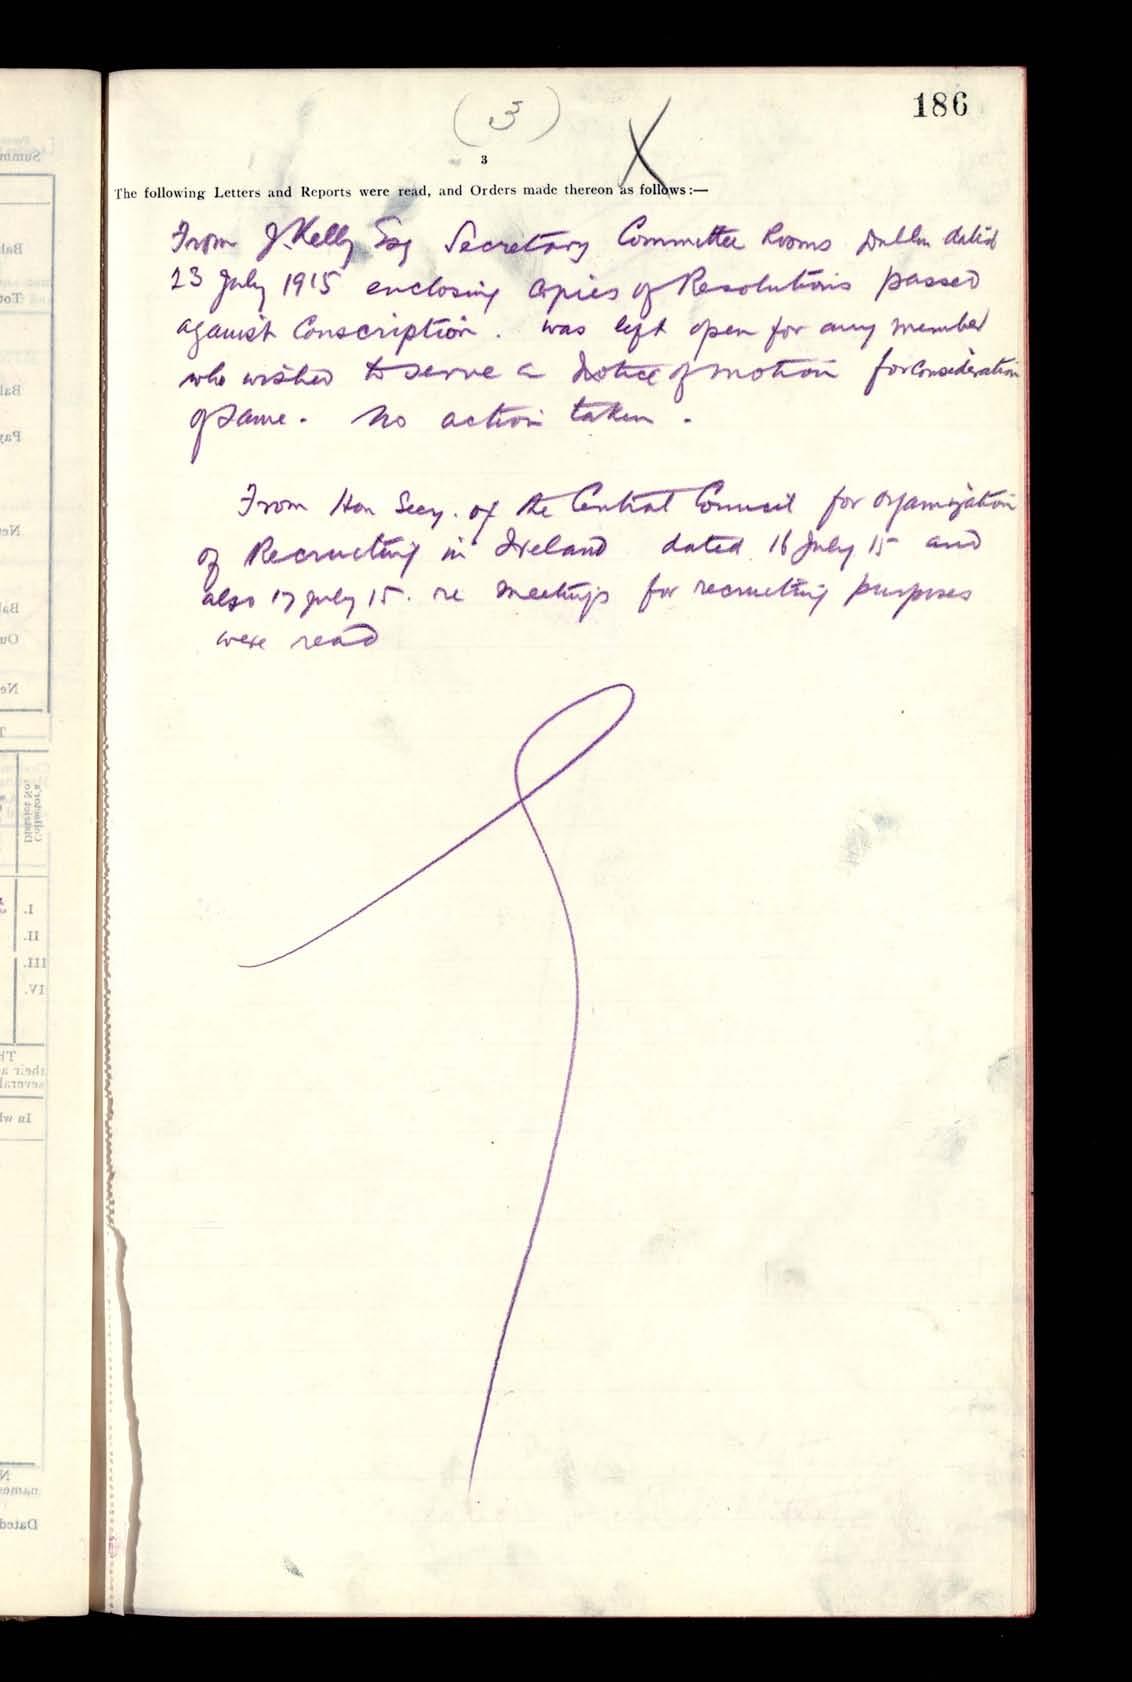 186
(3)
3
X
The following Letters and Reports were read, and Orders made thereon as follows:—
From J. Kelly Esq Secretary Committee Rooms Dublin dated
23 July 1915 enclosing copies of Resolutions passed
against Conscription. was left open for any member
who wished to serve a Notice of motion for consideration
of same. No action taken.
From Hon Secy. of the Central Council for Organization
of Recruiting in Ireland dated 16 July 15 and
also 17 July 15. re meetings for recruiting purposes
were read
Summ
Bal
Tot
Bal
Pay
Ne
Bal
Ou
Ne
T
Collector's
District No.
I.
II.
III.
IV.
Th
their a
several
In wh
N
names
Dated